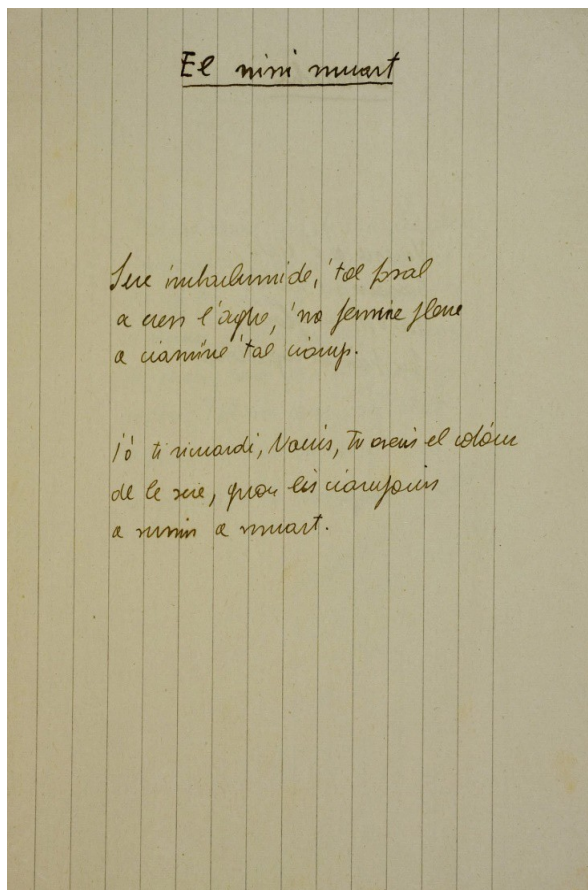 El nini muart
Sere imbarlumide, 'tal fosàl
a cres l'aghe, 'na femine plene
a ciamine 'tal ciamp.
Jo ti ricuardi, Narcis, tu vevis el colôur
de le sere, quan lis ciampanis
a sunin a muart.